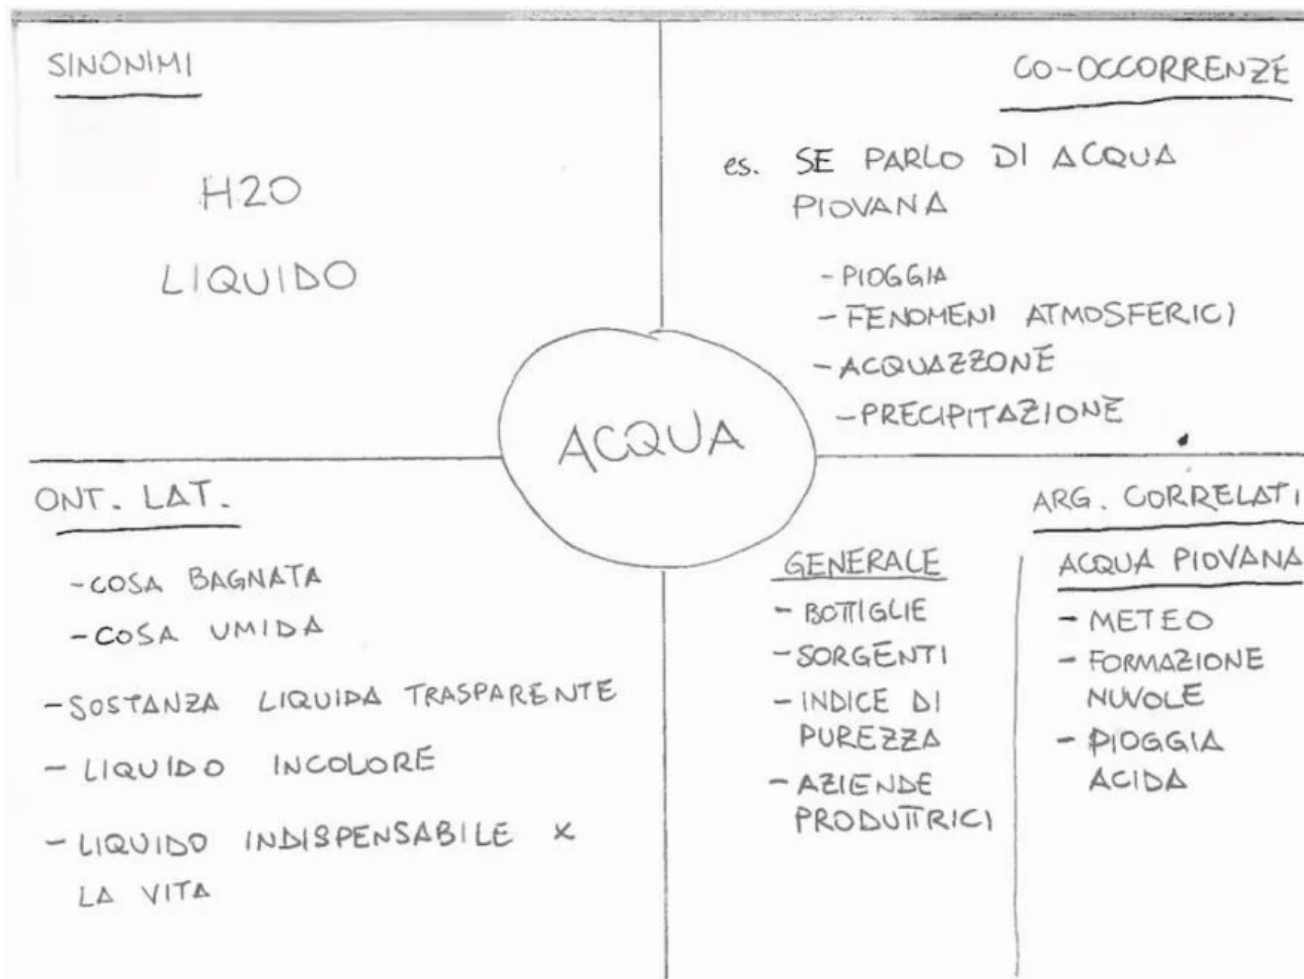 SINONIMI
H2O
LIQUIDO
CO-OCCORRENZE
es. SE PARLO DI ACQUA
PIOVANA
- PIOGGIA
- FENOMENI ATMOSFERICI
- ACQUAZZONE
- PRECIPITAZIONE
ACQUA
ONT. LAT.
- COSA BAGNATA
- COSA UMIDA
- SOSTANZA LIQUIDA TRASPARENTE
- LIQUIDO INCOLORE
- LIQUIDO INDISPENSABILE X
LA VITA
ARG. CORRELATI
GENERALE
- BOTTIGLIE
- SORGENTI
- INDICE DI
PUREZZA
- AZIENDE
PRODUTTRICI
ACQUA PIOVANA
- METEO
- FORMAZIONE
NUVOLE
- PIOGGIA
ACIDA